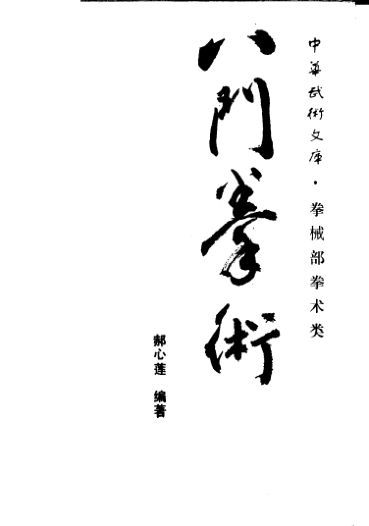 中华武術文库·拳械部拳术类
八門拳術
郝心莲 编著